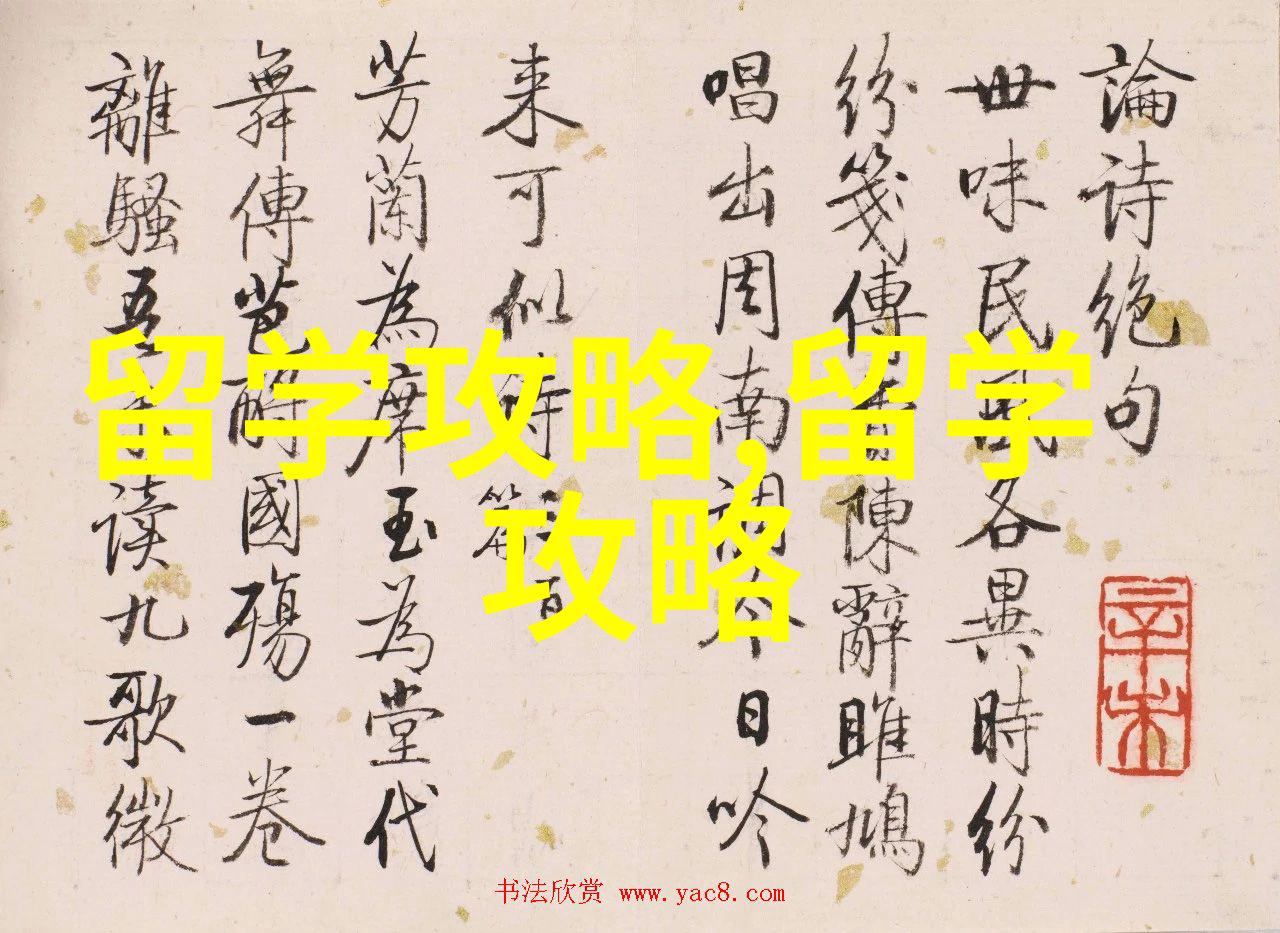 論詩绝句
世味民風各異時紛
紛笺傳陳辭雎鳩
唱出周南調今日吟
来可似時
芳蘭為席玉為堂代
舞傳芭酹國殤一卷
離騷讀九歌微
辛未
留学攻略,留学
攻略
书法欣赏 www.yac8.com